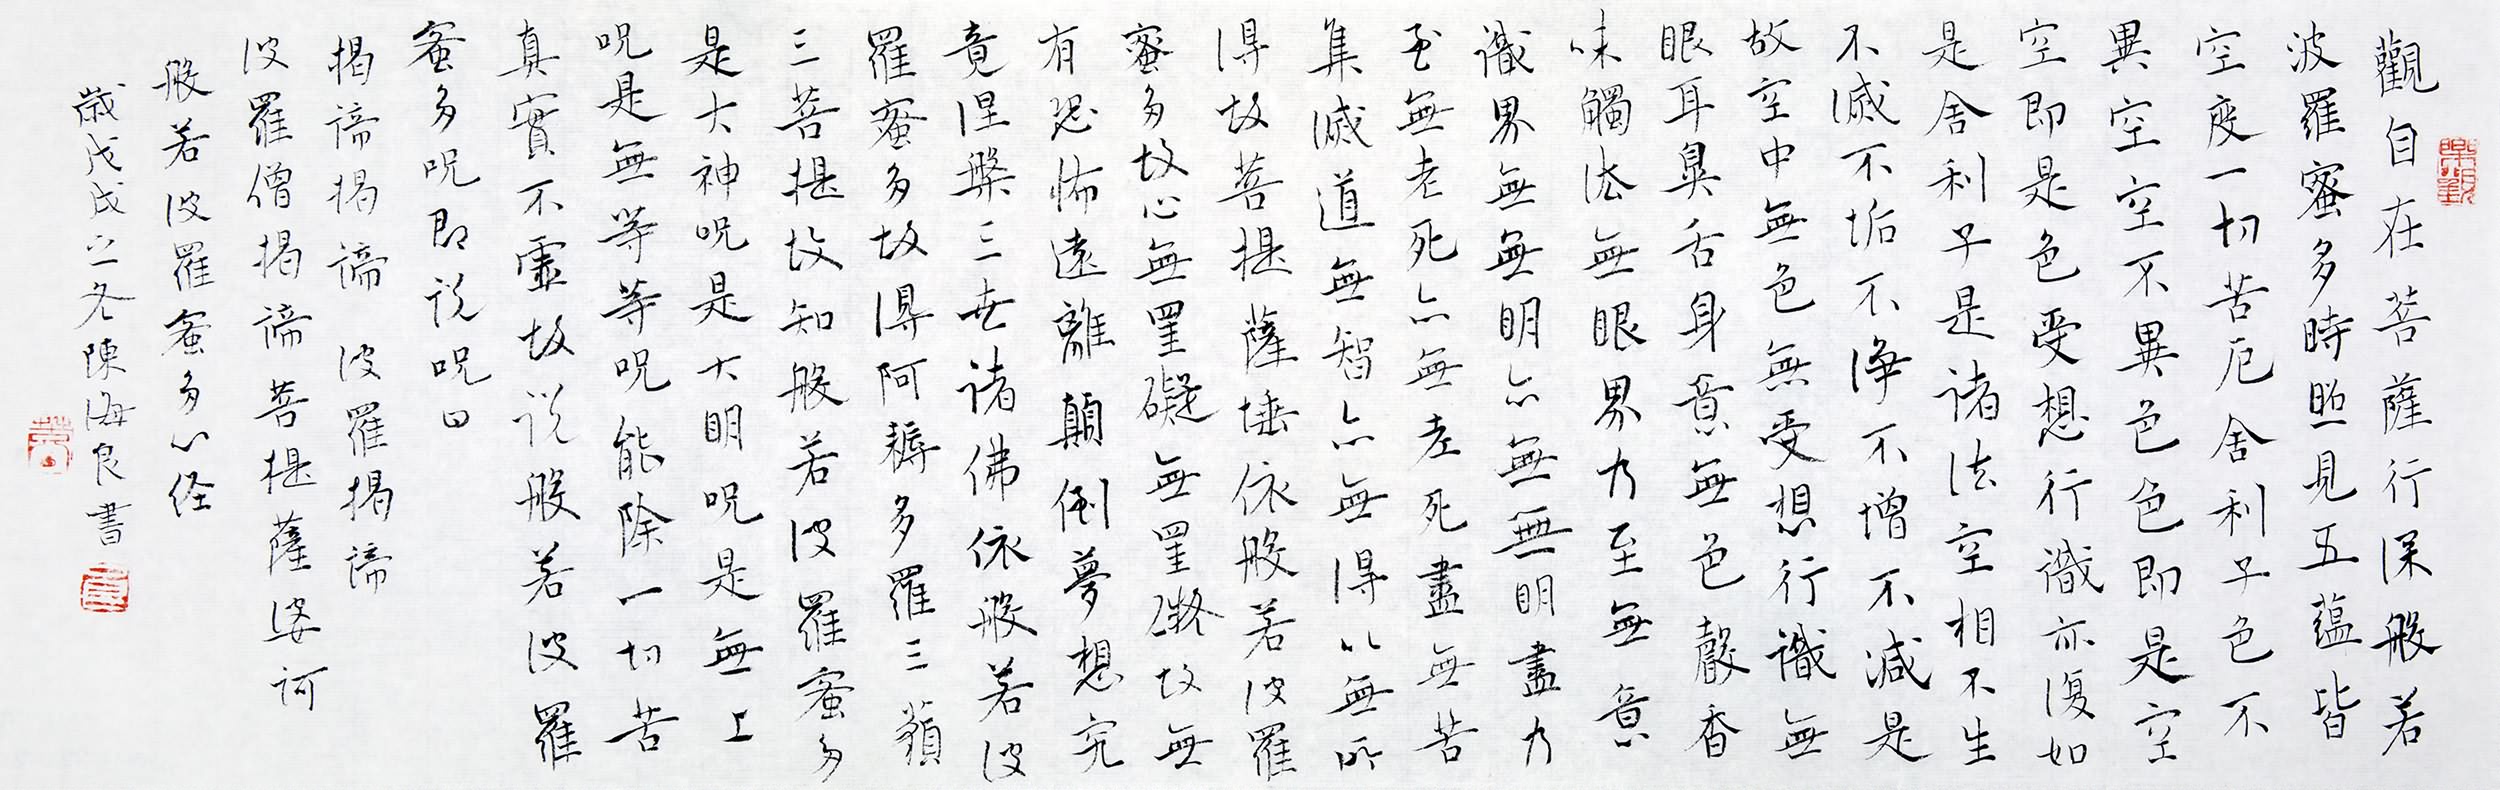 觀自在菩薩行深般若
波羅蜜多時照見五蘊皆
空度一切苦厄舍利子色不
異空空不異色色即是空
空即是色受想行識亦復如
是舍利子是諸法空相不生
不滅不垢不淨不增不減是
故空中無色無受想行識無
眼耳鼻舌身意無色聲香
味觸法無眼界乃至無意
識界無無明亦無無明盡乃
至無老死亦無老死盡無苦
集滅道無智亦無得以無所
得故菩提薩埵依般若波羅
蜜多故心無罣礙無罣礙故無
有恐怖遠離顛倒夢想究
竟涅槃三世諸佛依般若波
羅蜜多故得阿耨多羅三藐
三菩提故知般若波羅蜜多
是大神咒是大明咒是無上
咒是無等等咒能除一切苦
真實不虛故说般若波羅
蜜多咒即说咒曰
揭諦揭諦 波羅揭諦
波羅僧揭諦菩提薩婆訶
般若波羅蜜多心经
歲戊戌之冬陳海良書